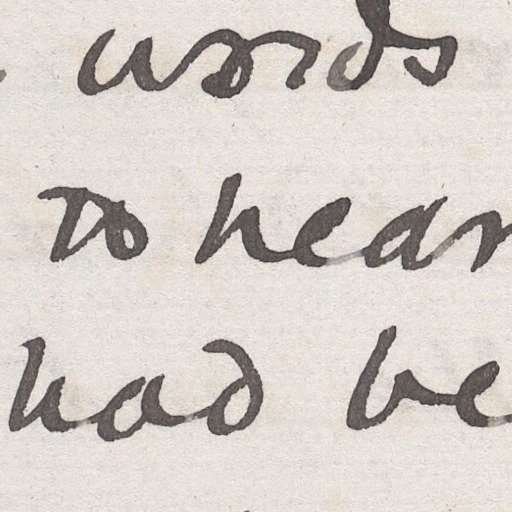 words
to hear
had be